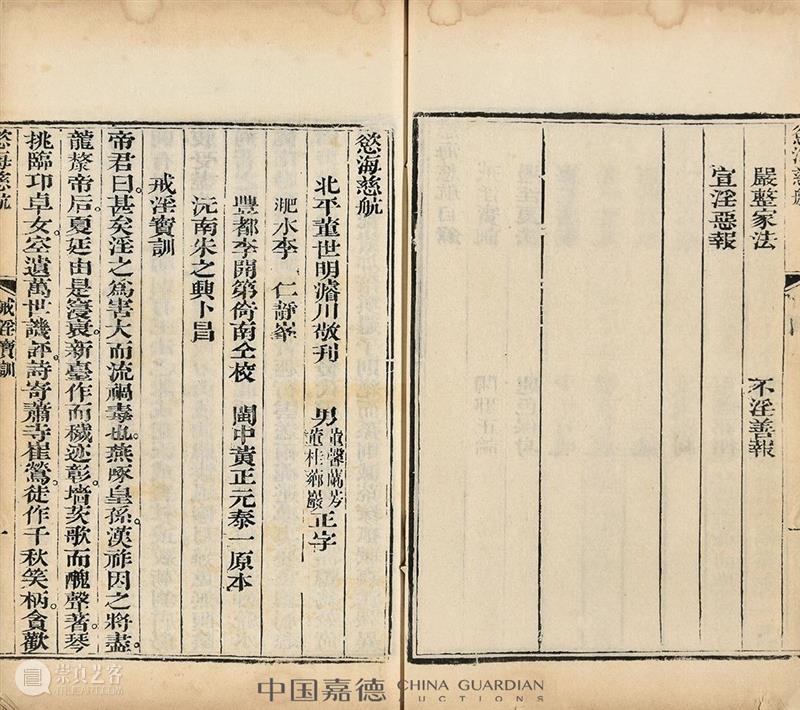 嚴整家法 不淫善報
宣淫惡報
慾海慈航
北平董世明濬川敬刊 男 董馨蘭芳 董桂薌巖 正字
淝水李 仁靜峯
豐都李開第倚南仝校 閩中黄正元泰一原本
沅南朱之興卜昌
戒淫寶訓
帝君曰。甚矣淫之爲害大而流禍毒也。燕啄皇孫。漢祚因之將盡。
龍漦帝后。夏延由是寖衰。新臺作而穢迹彰。墻茨歌而醜聲著。琴
挑臨卭卓女。空遺萬世譏評。詩寄蕭寺崔鶯。徒作千秋笑柄。貪歡
慾海慈航 戒淫寶訓 一
中国嘉德 CHINA GUARDIAN AUCTIONS
崇真艺客